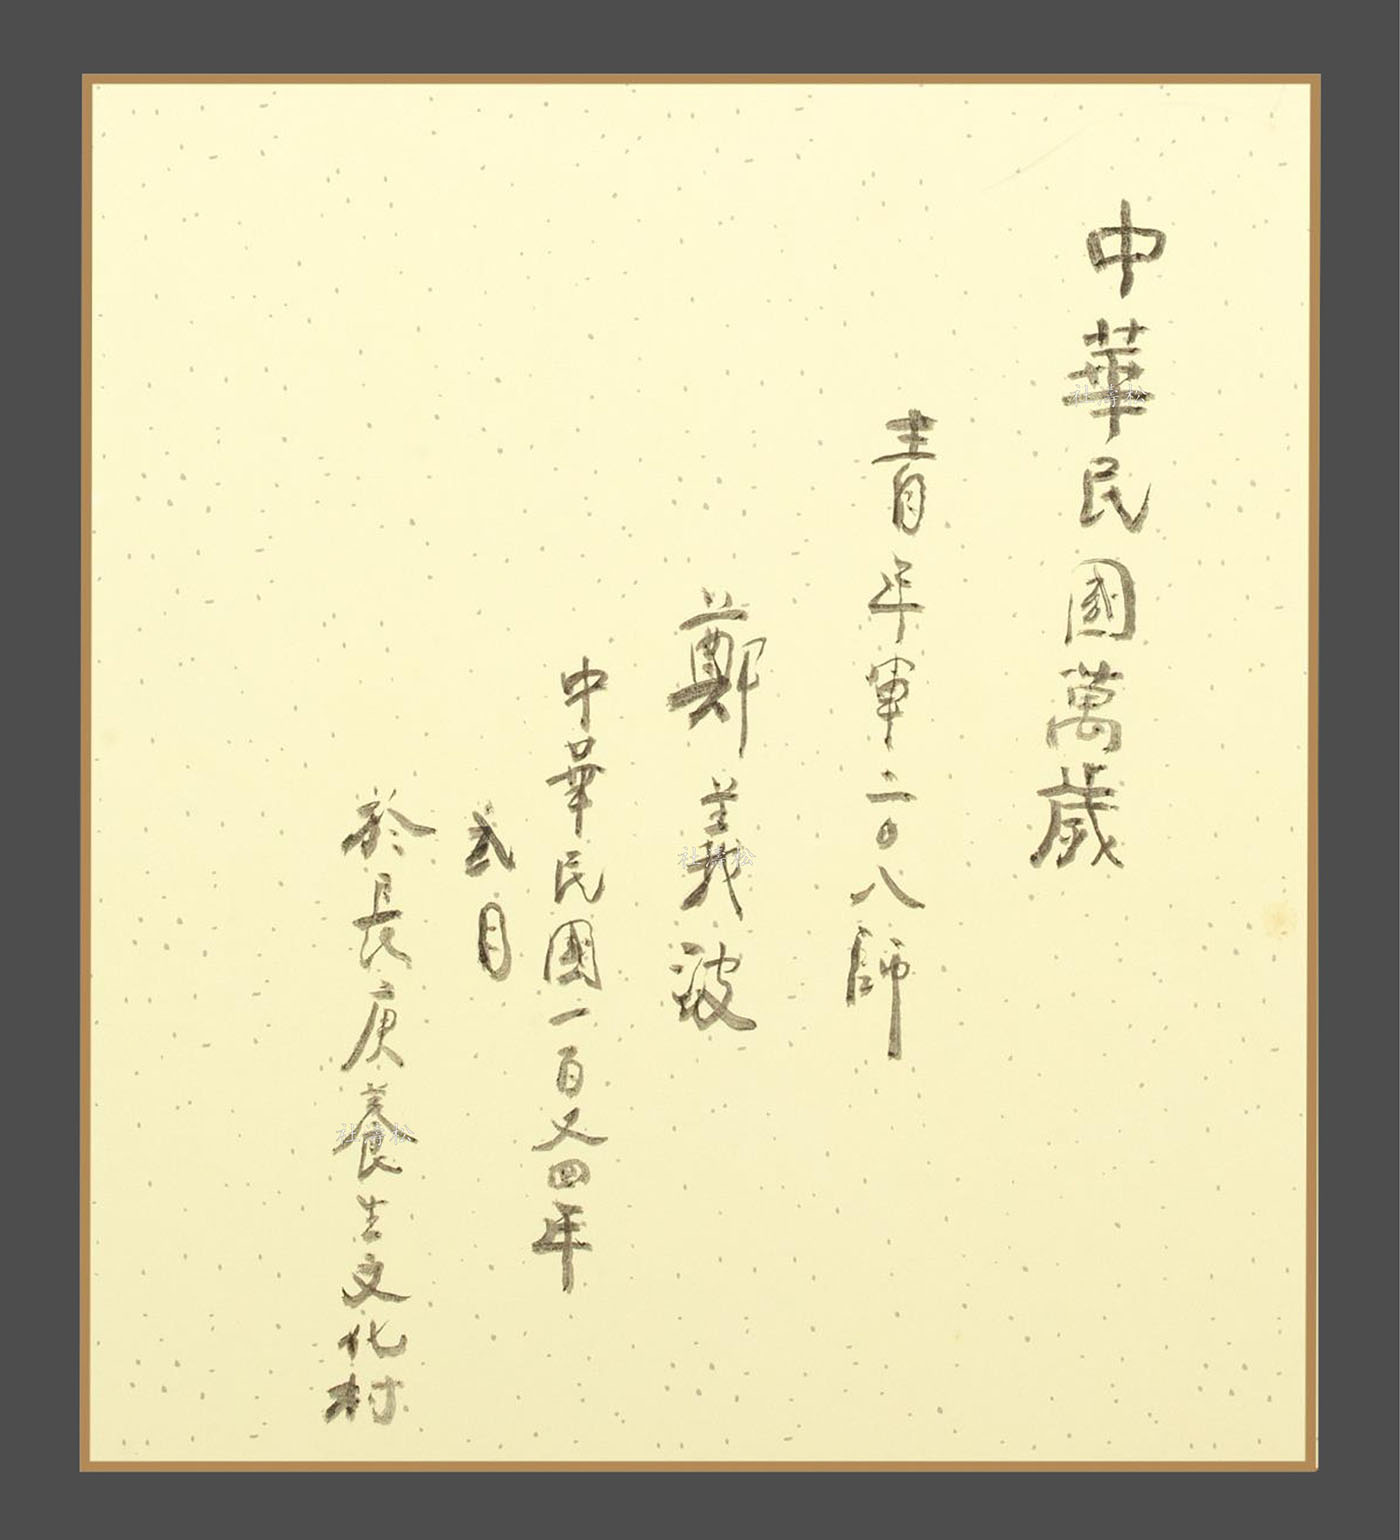 中華民國萬歲
青年軍二〇八師
鄭義波
中華民國一百又四年
弍月
於長庚養生文化村